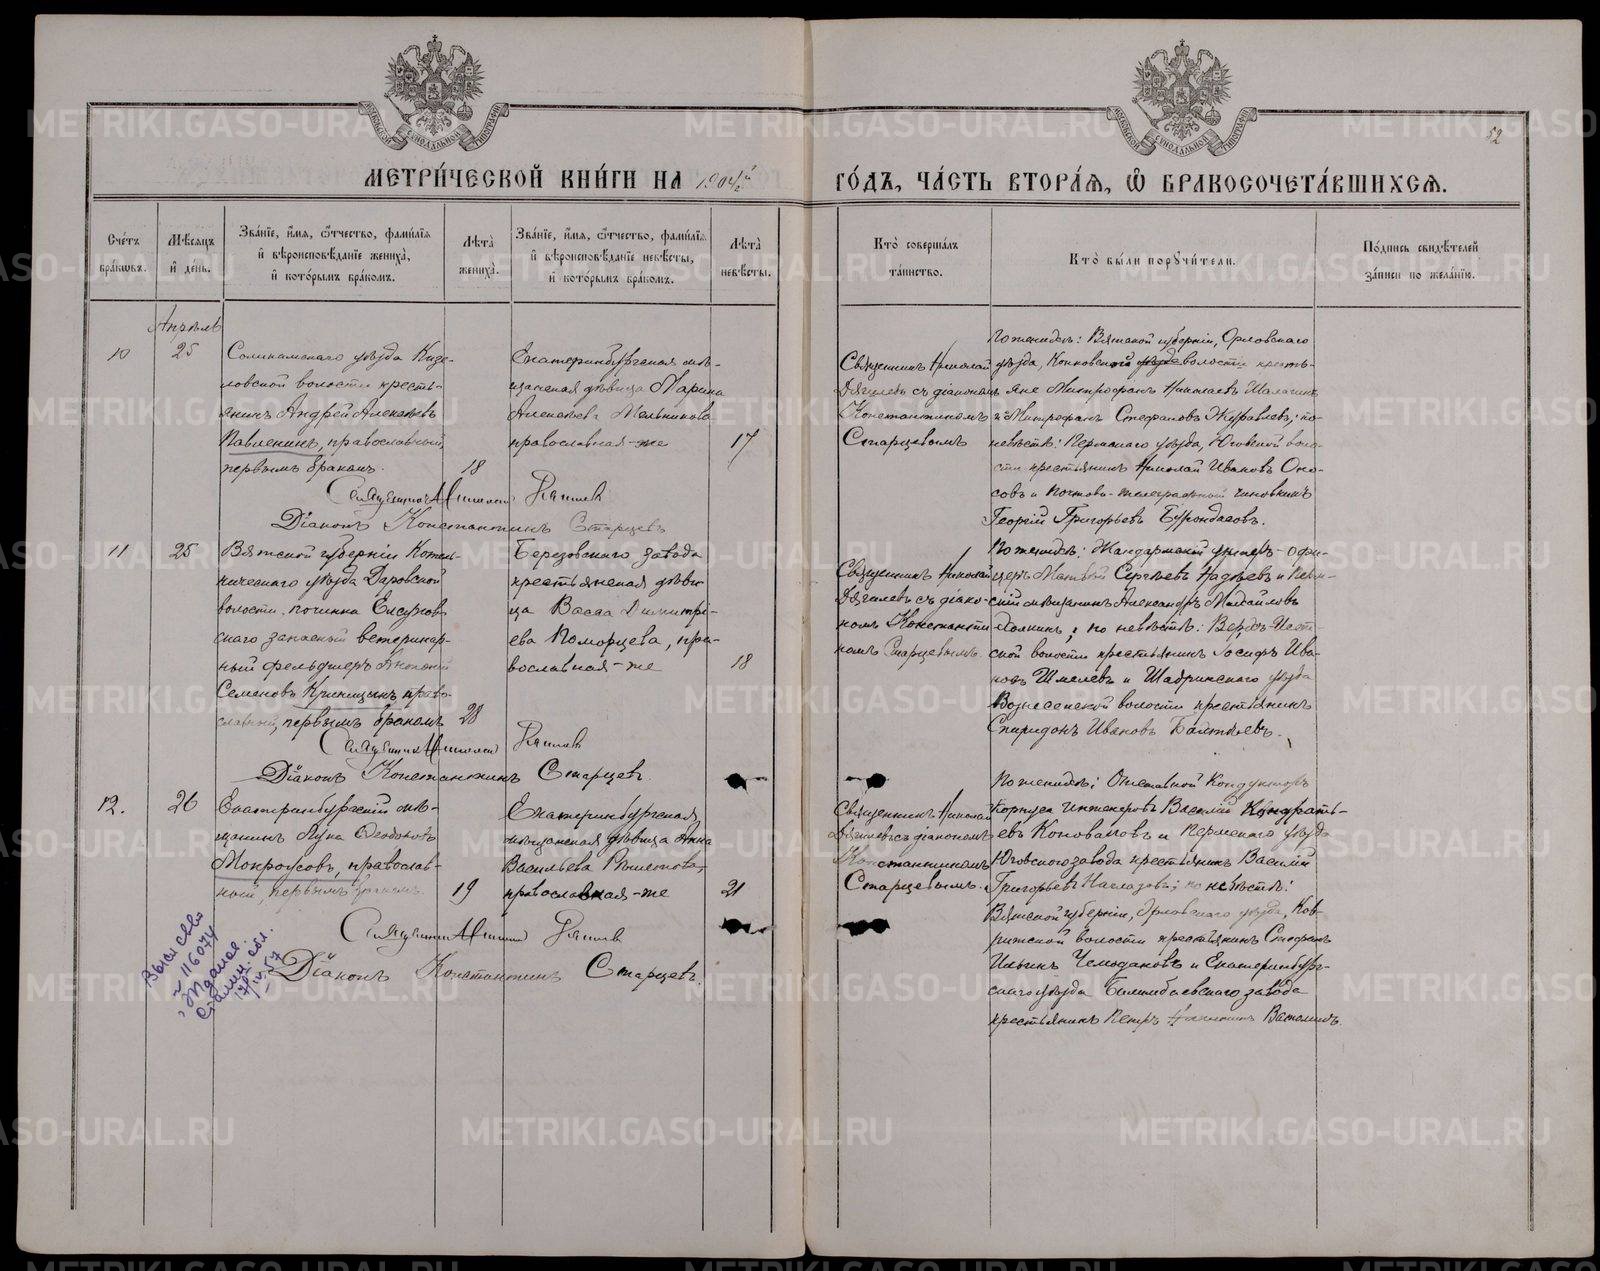 52
МЕТРИ́ЧЕСКОЙ КНИ́ГИ НА 1904й ГО́ДЪ, ЧА́СТЬ ВТОРА́Я, Ѡ БРАКОСОЧЕТА́ВШИХСЯ.
Сче́тъ бра́ковъ.
Мѣ́сяцъ и҆ де́нь.
Зва́нїе, и҆́мя, ѻ҆́тчество, фами́лїя
и҆ вѣроисповѣ́данїе жениха̀,
и҆ кото́рымъ бра́комъ.
Лѣ́та жениха̀.
Зва́нїе, и҆́мя, ѻ҆́тчество, фами́лїя
и҆ вѣроисповѣ́данїе невѣ́сты,
и҆ кото́рымъ бра́комъ.
Лѣ́та невѣ́сты.
Кто̀ соверша́лъ
та́инство.
Кто̀ бы́ли порꙋчи́тели.
По́дпись свидѣ́телей
за́писи по жела́нїю.
Апрѣль
10
25
Соликамскаго уѣзда Кизе-
ловской волости кресть-
янинъ Андрей Алексѣевъ
Павленинъ, православный,
первымъ бракомъ.
18
Екатеринбургская мѣ-
щанская дѣвица Марина
Алексѣева Мельникова
православная-же
17
Священникъ Николай
Дягилевъ съ діакономъ
Константиномъ
Старцевымъ
По женихѣ: Вятской губерніи, Орловскаго
уѣзда, волости кресть-
яне Митрофанъ Николаевъ
и Митрофанъ Стефановъ Журавлевъ; по
невѣстѣ: Пермскаго уѣзда, Юговской воло-
сти крестьянинъ Николай Ивановъ Оно-
совъ и почтово-телеграфный чиновникъ
Георгій Григорьевъ Бурондасовъ.
Священникъ Николай Дягилевъ
Діаконъ Константинъ Старцевъ
11
25
Вятской губерніи Котель-
ническаго уѣзда Даровской
волости, починка
запасный ветеринар-
ный фельдшеръ
Семеновъ Криницынъ, право-
славный, первымъ бракомъ
28
Березовскаго завода
крестьянская дѣви-
ца Васса Димитрі-
ева Поморцева, пра-
вославная-же
18
Священникъ Николай
Дягилевъ съ діако-
номъ Константи-
номъ Старцевымъ.
По женихѣ: Жандармскій унтеръ-офи-
церъ Матвѣй Сергѣевъ и Перм-
скій мѣщанинъ Александръ Михайловъ
по невѣстѣ: Верхъ-Исет-
ской волости крестьянинъ Іосифъ Ива-
новъ Шмелевъ и Шадринскаго уѣзда
Вознесенской волости крестьянинъ
Спиридонъ Ивановъ
Священникъ Николай Дягилевъ
Діаконъ Константинъ Старцевъ.
12.
26
Екатеринбургскій мѣ-
щанинъ Лука Ѳеодоровъ
Мокроусовъ, православ-
ный, первымъ бракомъ.
19
Екатеринбургская
мѣщанская дѣвица Анна
Васильева
православная-же
21
Священникъ Николай
Дягилевъ съ діакономъ
Константиномъ
Старцевымъ.
По женихѣ: Отставной Кондукторъ
Корпуса Инженеровъ Василій Кондрать-
евъ Коноваловъ и Пермскаго уѣзда
Юговскаго завода крестьянинъ Василій
Григорьевъ по невѣстѣ:
Вятской губерніи, Орловскаго уѣзда, Ков-
рижской волости крестьянинъ Стефанъ
Ильинъ Чемодановъ и Екатеринбург-
скаго уѣзда Билимбаевскаго завода
крестьянинъ Петръ
Священникъ Николай Дягилевъ
Діаконъ Константинъ Старцевъ.
Выс. св-во
116074
17/IV.57
METRIKI.GASO-URAL.RU